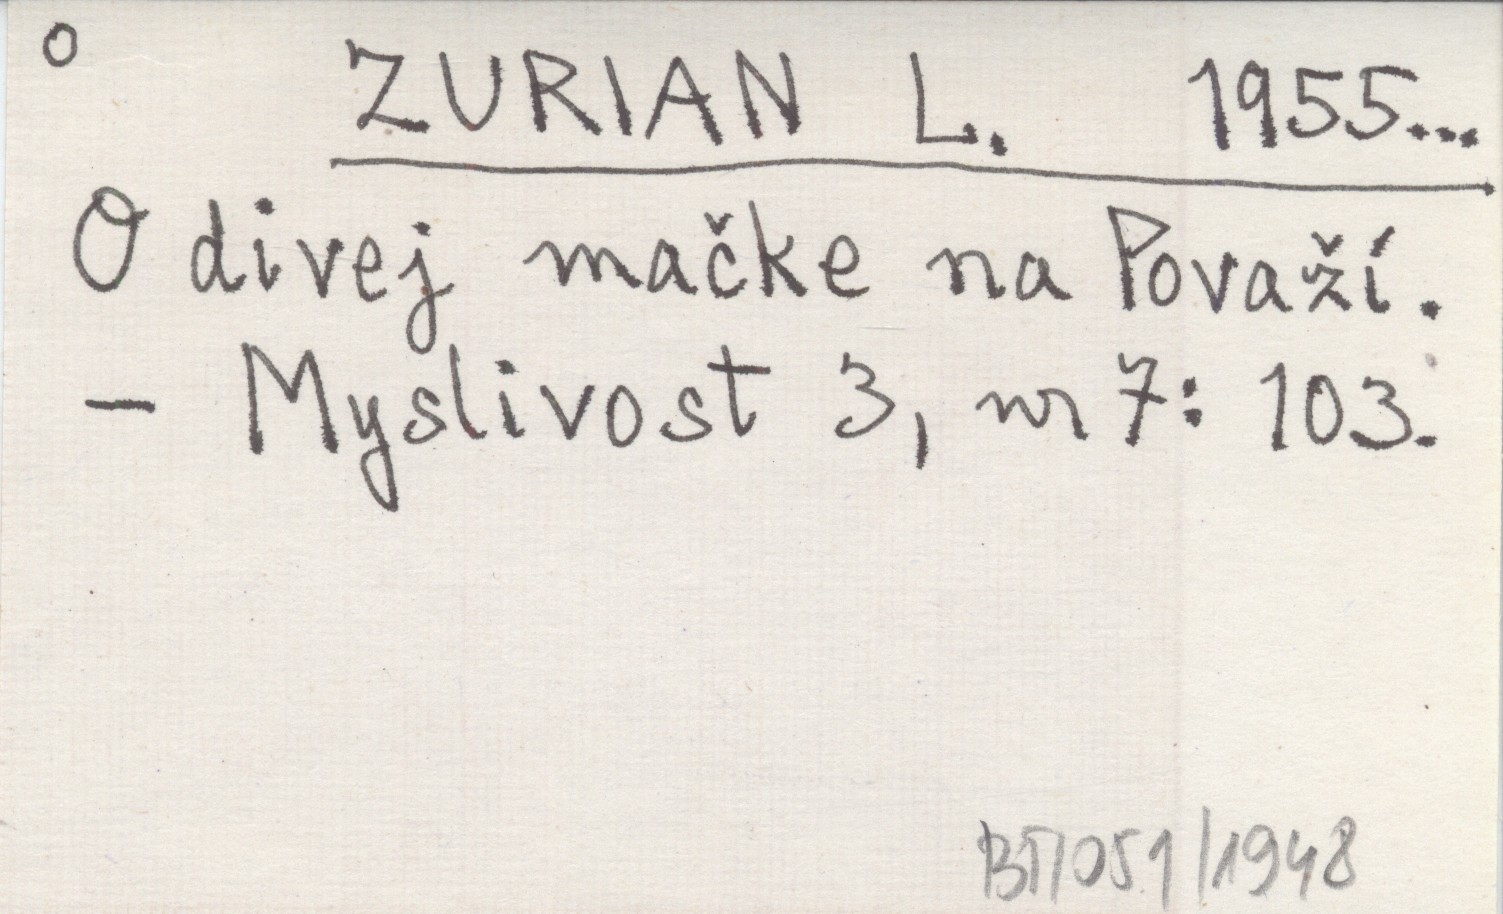 o
ZURIAN L. 1955...
O divej mačke na Považí.
- Myslivost 3, nr 7: 103.
/1948